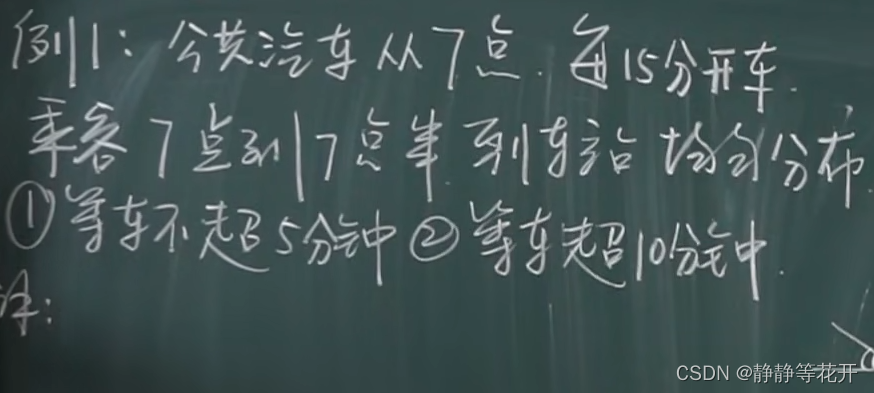 例1: 公共汽车从7点. 每15分开车.
乘客7点到7点半到车站 均匀分布
①等车不超5分钟 ②等车超10分钟.
解:
CSDN @静静等花开